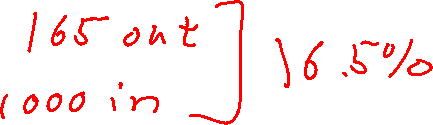 165 out
1000 in ] 16.5%